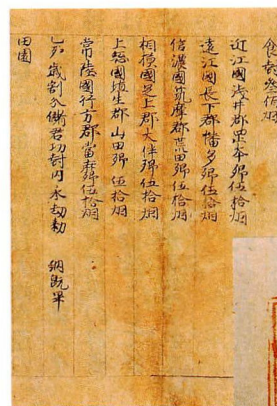 食封叁佰烟
近江國浅井郡罡本郷伍拾烟
遠江國長下郡幡多郷伍拾烟
信濃國筑摩郡荒田郷伍拾烟
相模國足上郡大伴郷伍拾烟
上総國埴生郡山田郷伍拾烟
常陸國行方郡當麻郷伍拾烟
歳割入 君功封内永 勅 納既畢
田園